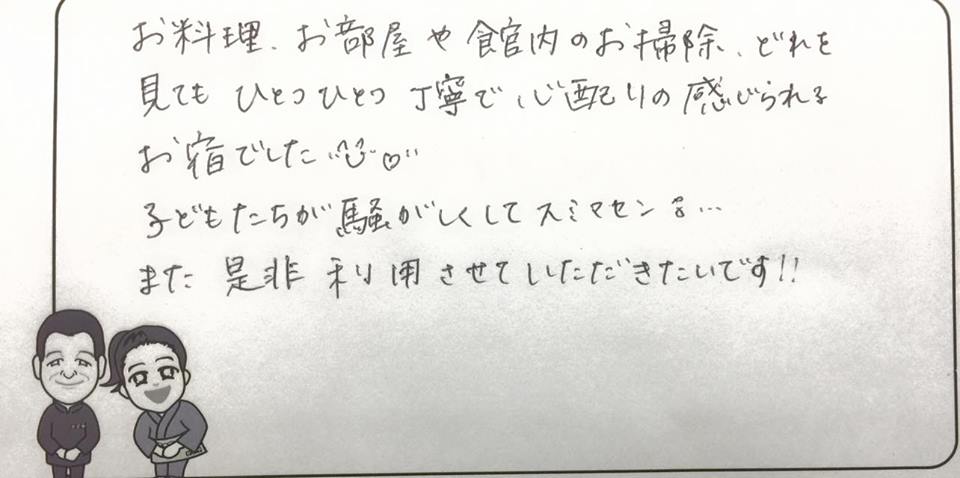 お料理、お部屋や食官内のお掃除、どれを
見ても ひとつひとつ 丁寧で心配りの感じられる
お宿でした
子どもたちが騒がしくしてスミマセン…
また是非利用させていただきたいです!!